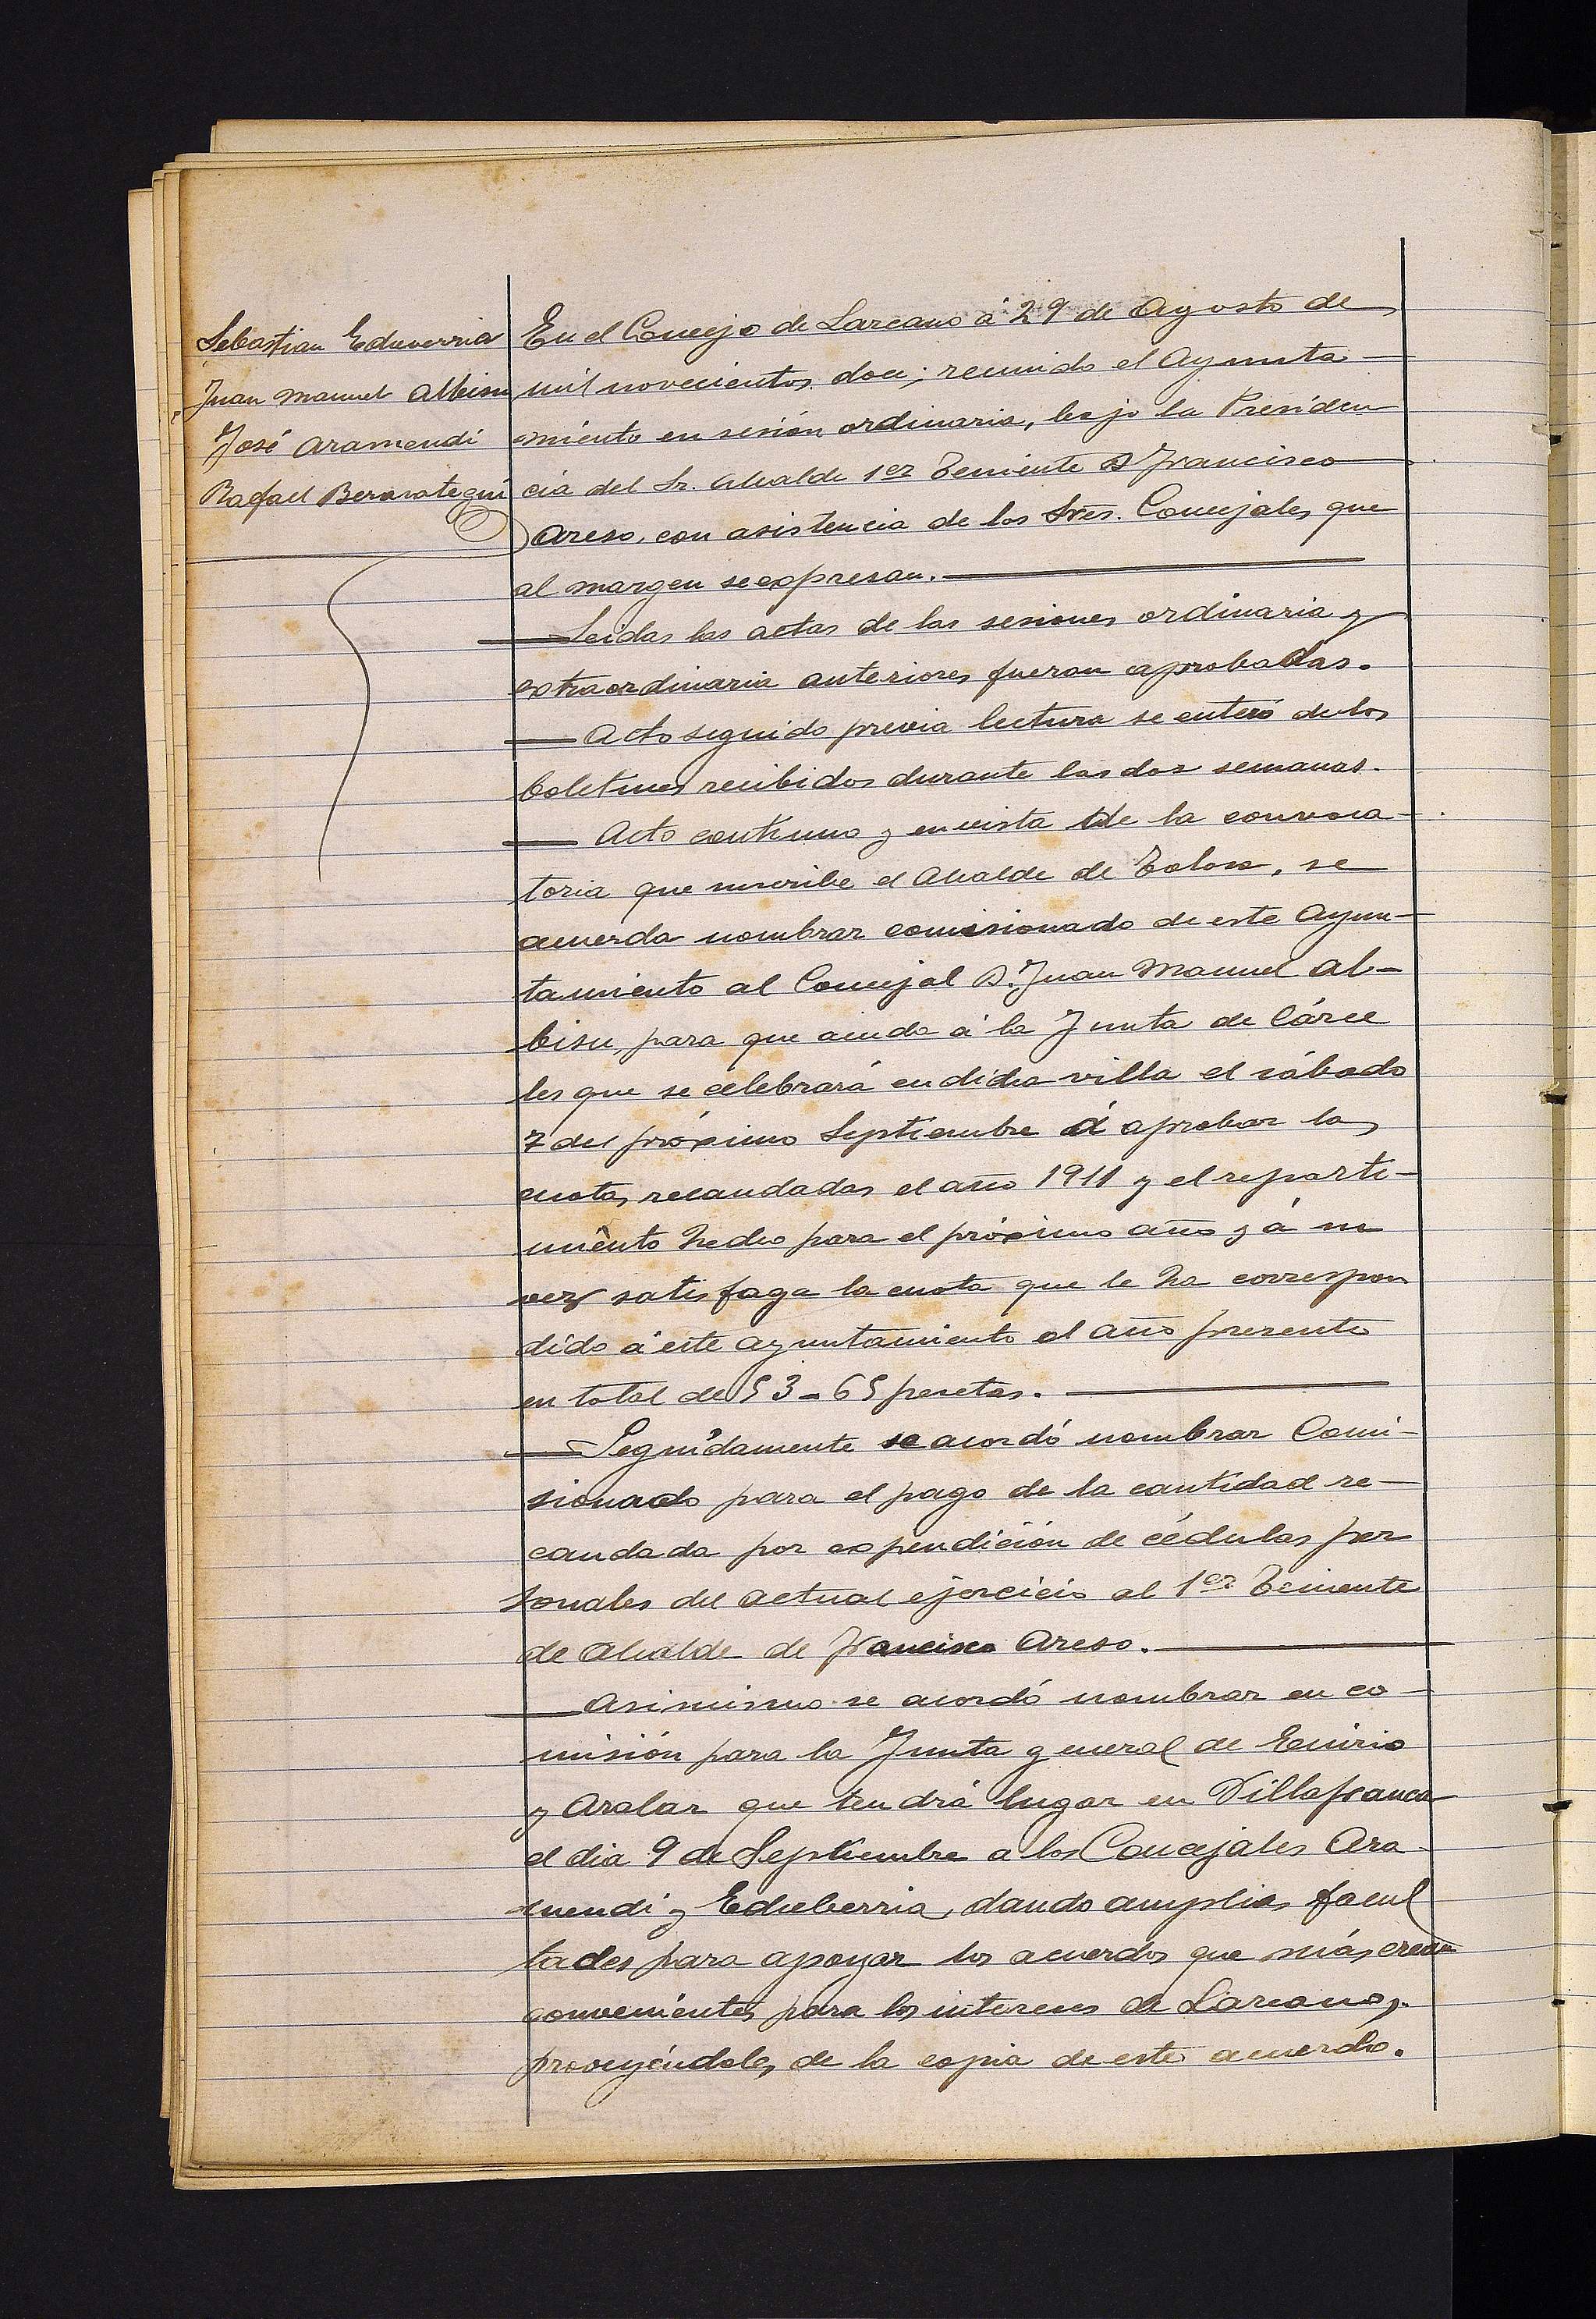 Sebastian Echeverria
Juan Manuel Albisu
José Aramendi
Rafael Berasategui
En el Concejo de Lazcano á 29 de Agosto de
mil novecientos doce; reunido el Ayunta-
miento en sesión ordinaria, bajo la Presiden
cia del Sr. Alcalde 1er Teniente D Francisco
Areso, con asistencia de los Sres. Concejales que
al margen se expresan.
Leidas las actas de las sesiones ordinaria y
extraordinaria anteriores fueron aprobadas.
Acto seguido previa lectura se enteró de los
boletines recibidos durante las dos semanas.
Acto continuo y en vista de la convoca-
toria que suscribe el Alcalde de Tolosa, se
acuerda nombrar comisionado de este Ayun-
tamiento al Concejal D. Juan Manuel Al-
bisu, para que acuda á la Junta de Cárce
les que se celebrará en dicha villa el sábado
7 del próximo Septiembre á aprobar las
cuotas recaudadas el año 1911 y el reparti-
miento hecho para el próximo año y á su
vez satisfaga la cuota que le ha correspon
dido á este ayuntamiento el año presente
en total de 53-65 pesetas.
Seguidamente se acordó nombrar Comi-
sionado para el pago de la cantidad re-
caudada por expendición de cédulas per
sonales del actual ejercicio al 1er Teniente
de Alcalde de Francisco Areso.
Asimismo se acordó nombrar en co-
misión para la Junta general de Enirio
y Aralar que tendrá lugar en Villafranca
el dia 9 de Septiembre a los Concejales Ara-
mendi y Echeberria, dando amplias facul
tades para apoyar los acuerdos que más crean
convenientes para los intereses de Lazcano,
proveyéndoles de la copia de este acuerdo.